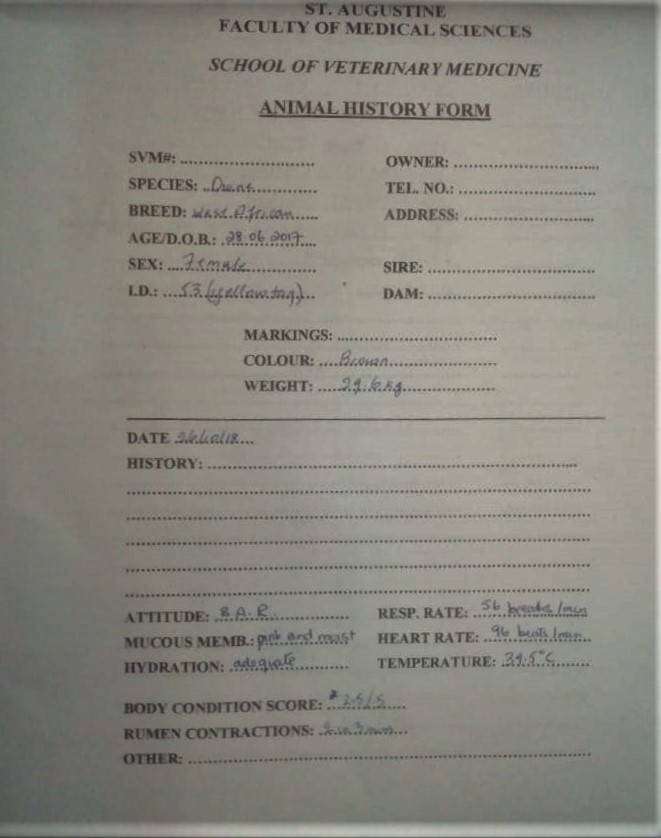 ST. AUGUSTINE
FACULTY OF MEDICAL SCIENCES
SCHOOL OF VETERINARY MEDICINE
ANIMAL HISTORY FORM
SVM#: ..........................
OWNER: ............................
SPECIES: ..........................
TEL. NO.: ..........................
BREED: West African
ADDRESS: ..........................
AGE/D.O.B.: 28.06.2017
SEX: Female
SIRE: ................................
I.D.: 53 (yellow tag)
DAM: ................................
MARKINGS: ................................
COLOUR: Brown
WEIGHT: 29.6 kg
DATE
HISTORY: ................................
ATTITUDE: B.A.R.
RESP. RATE: 56 breaths /min
MUCOUS MEMB.: pink and moist
HEART RATE: 96 beats /min
HYDRATION: adequate
TEMPERATURE: 39.5°C
BODY CONDITION SCORE: 2.5/5
RUMEN CONTRACTIONS:
OTHER: ................................